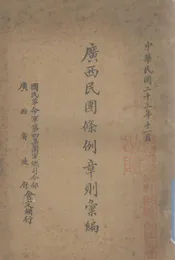 中華民國二十三年十一月
廣西民團條例章則彙編
國民革命軍第四集團軍總司令部
廣西省政府
會文頒行